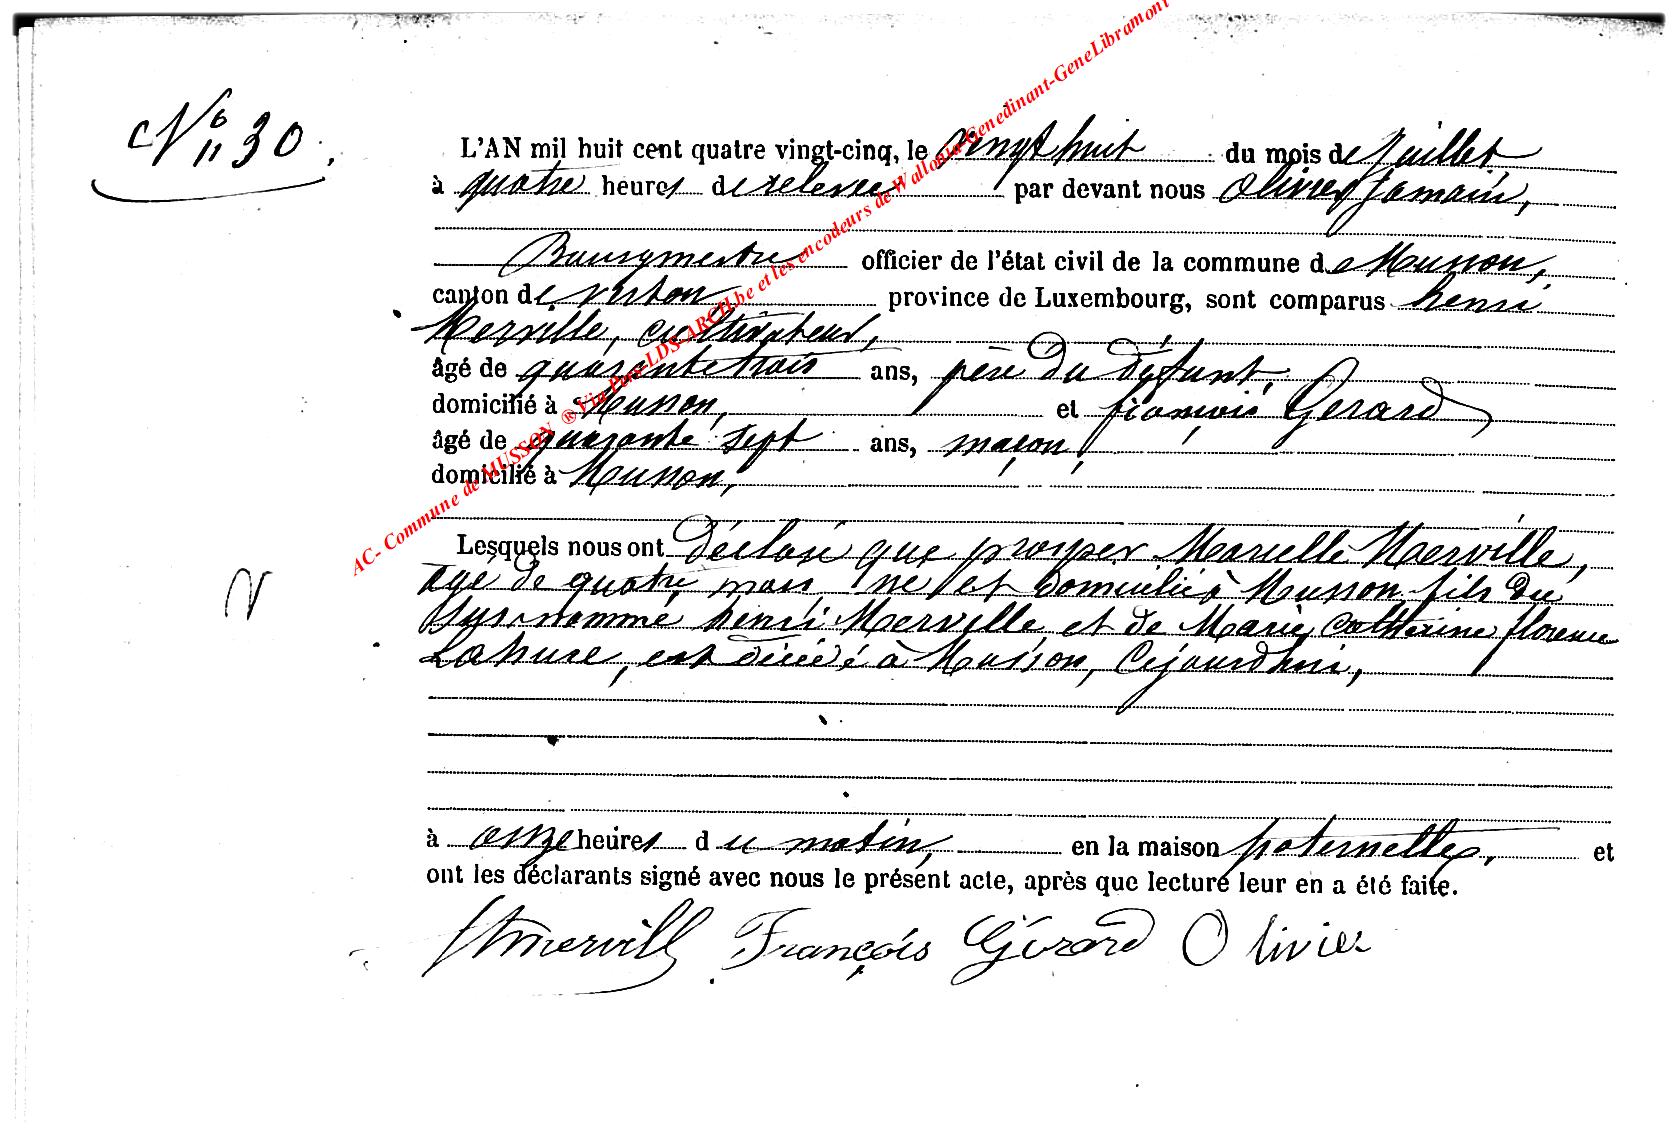 N° 30.
L'AN mil huit cent quatre vingt-cinq, le vingt huit du mois de Juillet
à quatre heures de relevée par devant nous Olivier Jamain,
Bourgmestre officier de l'état civil de la commune de Musson,
canton de Virton province de Luxembourg, sont comparus henri
Merville, cultivateur,
âgé de quarante trois ans, père du défunt,
domicilié à Musson, et françois Gerard
âgé de quarante sept ans, maçon,
domicilié à Musson,
Lesquels nous ont déclaré que prosper Marielle Merville,
age de quatre mois, né et domicilié à Musson, fils du
susnommé henri Merville, et de Marie Catherine florence
Lahure, est décédé à Musson, cejourdhui,
à onze heures du matin, en la maison paternelle, et
ont les déclarants signé avec nous le présent acte, après que lecture leur en a été faite.
Hmerville François Gérard Olivier
AC- Commune de MUSSON ® Via Pers-LDS-ARCH.be et les encodeurs de Wallonia-Genedinant-GeneLibramont